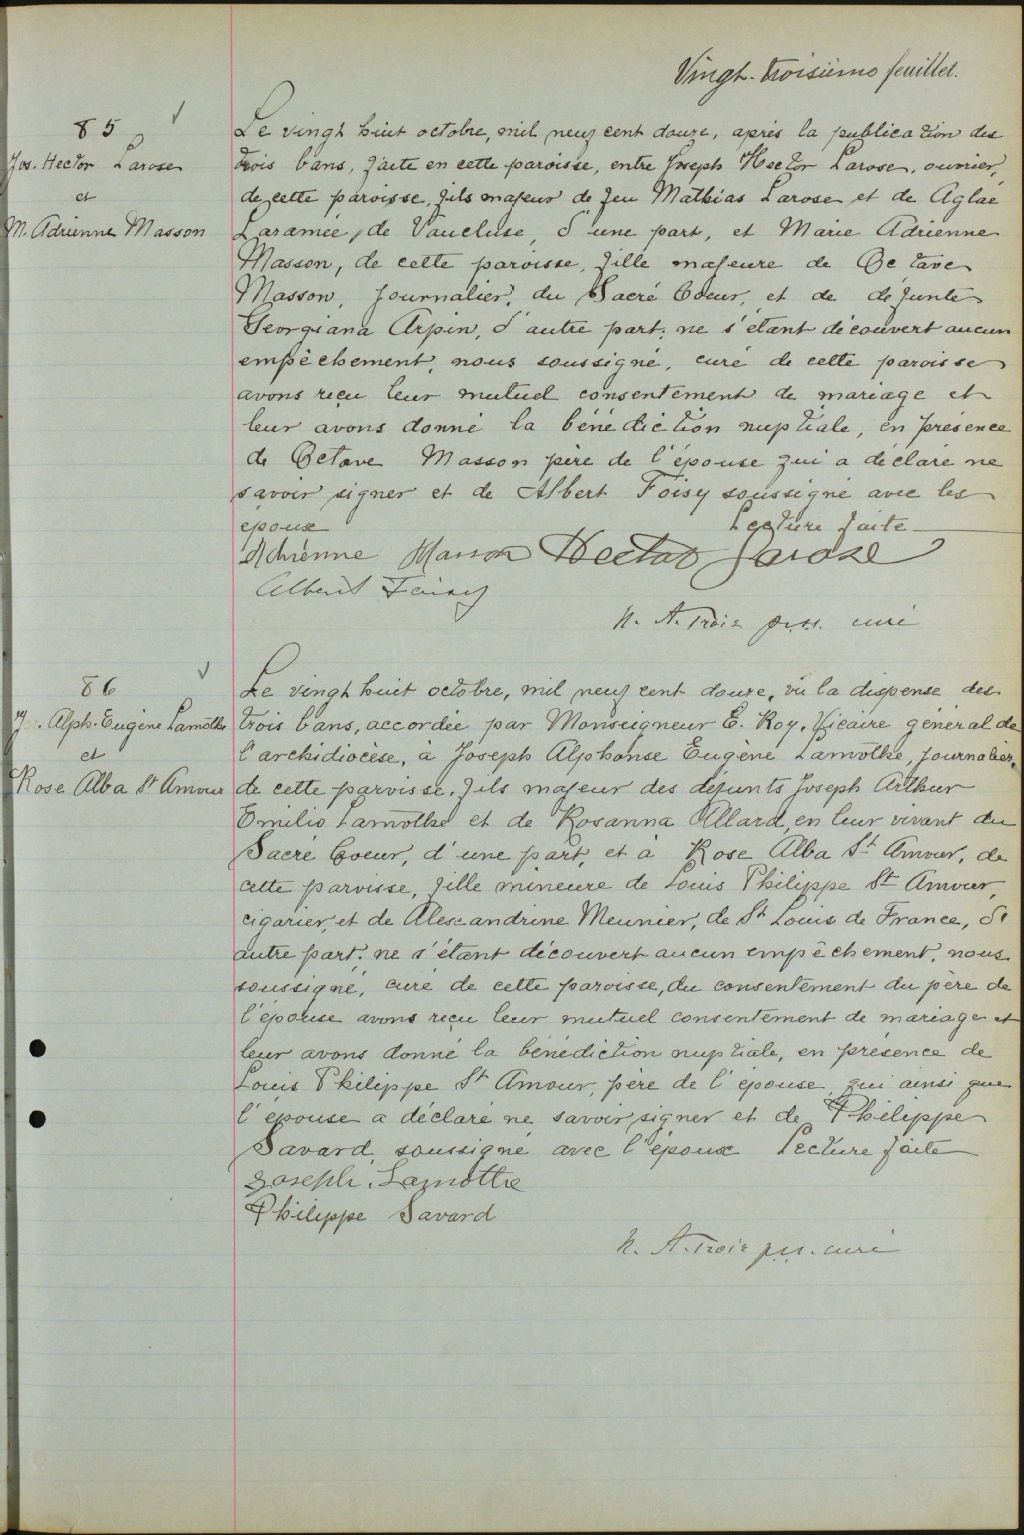 Vingt-troisième feuillet.
85
Jos. Hector Larose
et
M. Adrienne Masson
Le vingt huit octobre, mil neuf cent douze, après la publication des
trois bans, faite en cette paroisse, entre Joseph Hector Larose, ouvrier,
de cette paroisse, fils majeur de feu Mathias Larose et de Aglaé
Laramée, de Vaucluse, d'une part, et Marie Adrienne
Masson, de cette paroisse, fille majeure de Octave
Masson, journalier, du Sacré Coeur, et de défunte
Georgiana Arpin, d'autre part; ne s'étant découvert aucun
empêchement, nous soussigné, curé de cette paroisse
avons reçu leur mutuel consentement de mariage et
leur avons donné la bénédiction nuptiale, en présence
de Octave Masson père de l'épouse qui a déclaré ne
savoir signer et de Albert Foisy soussigné avec les
époux Lecture faite
Adrienne Masson Hector Larose
Albert Foisy
N. A. Troie p.s.s. curé
86
Jos. Alph. Eugène Lamothe
et
Rose Alba St Amour
Le vingt huit octobre, mil neuf cent douze, vu la dispense des
trois bans, accordée par Monseigneur E. Roy, Vicaire général de
l'archidiocèse, à Joseph Alphonse Eugène Lamothe, journalier,
de cette paroisse, fils majeur des défunts Joseph Arthur
Emilio Lamothe et de Rosanna Allard, en leur vivant du
Sacré Coeur, d'une part, et à Rose Alba St Amour, de
cette paroisse, fille mineure de Louis Philippe St Amour,
cigarier, et de Alexandrine Meunier, de St Louis de France, d'
autre part; ne s'étant découvert aucun empêchement, nous
soussigné, curé de cette paroisse, du consentement du père de
l'épouse avons reçu leur mutuel consentement de mariage et
leur avons donné la bénédiction nuptiale, en présence de
Louis Philippe St Amour, père de l'épouse, qui ainsi que
l'épouse a déclaré ne savoir signer et de Philippe
Savard, soussigné avec l'époux Lecture faite
Joseph. Lamothe
Philippe Savard
N. A. Troie p.s.s. curé